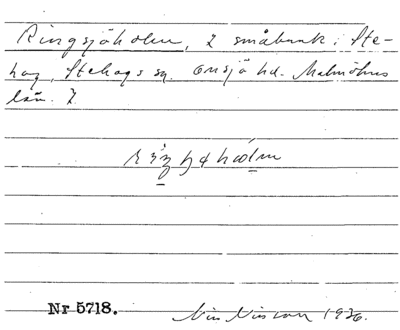 Ringsjöholm, 2 småbruk i Ste-
hag, Stehags sn. Onsjö hd. Malmöhus
län. 2.
Nr 5718.
Nils Nilsson 1936.